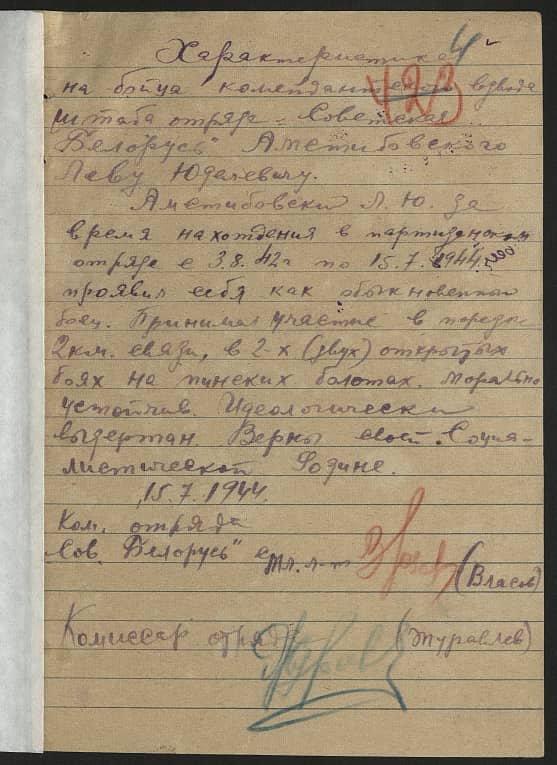 Характеристика 4
на бойца комендантского взвода
423
штаба отряда „Советская
Белорусь" Аметибовского
Леву Юделевичу.
Аметибовски Л. Ю. за
время нахождения в партизанском
отряде с 3.8.42г по 15.7.1944 г
проявил себя как обыкновенный
боец. Принимал участие в порыве
2км. связи, в 2-х (двух) открытых
боях на пинских болотах. Морально
устойчив. Идеологически
выдержан. Верны своей Социа-
листической Родине.
15.7.1944.
Ком. отряда
„Сов. Белорусь" мл. л-т (Власов)
Комиссар отряда (Журавлев)